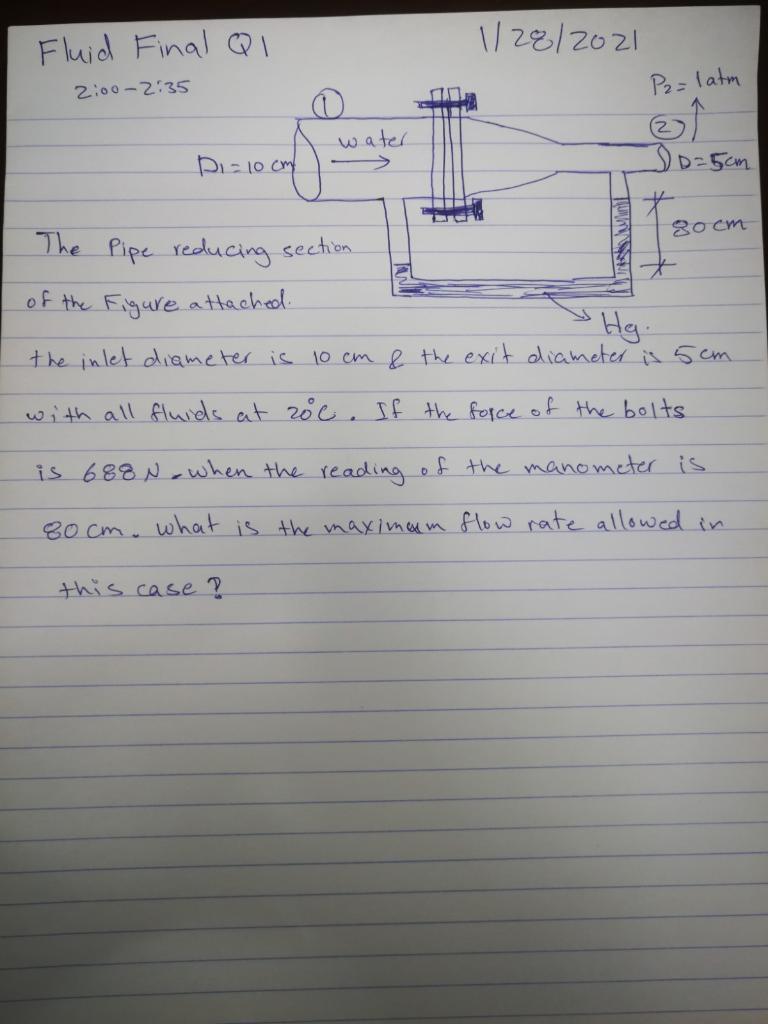 Fluid Final Q1 1/28/2021
2:00-2:35
P2 = 1atm
①
②
water
D1 = 10 cm
D = 5cm
80 cm
The Pipe reducing section
of the Figure attached.
Hg.
the inlet diameter is 10 cm & the exit diameter is 5cm
with all fluids at 20°C. If the force of the bolts
is 688 N. when the reading of the manometer is
80 cm. what is the maximum flow rate allowed in
this case?